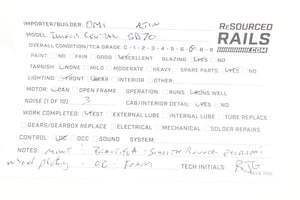 IMPORTER/BUILDER: OMI AJIN
ReSOURCED
RAILS
.COM
MODEL: ILLINOIS CENTRAL SD70
OVERALL CONDITION/TCA GRADE: C - 1 - 2 - 3 - 4 - 5 - 6 - 8 - 9
PAINT: NO FAIR GOOD EXCELLENT GLAZING: YES NO
TARNISH: NONE MILD MODERATE HEAVY SPARE PARTS: YES NO
LIGHTING: FRONT REAR INTERIOR OTHER:
MOTOR: CAN OPEN FRAME OPERATION: RUNS WELL
NOISE (1 OF 10) 3 CAB/INTERIOR DETAIL: YES NO
WORK COMPLETED: TEST EXTERNAL LUBE INTERNAL LUBE TUBE REPLACE
GEARS/GEARBOX REPLACE ELECTRICAL MECHANICAL SOLDER REPAIRS
CONTROL: DC DCC SOUND SYSTEM:
NOTES: MINT - BEAUTIFUL - SMOOTH RUNNER
- OB - FOAM TECH INITIALS: RJG